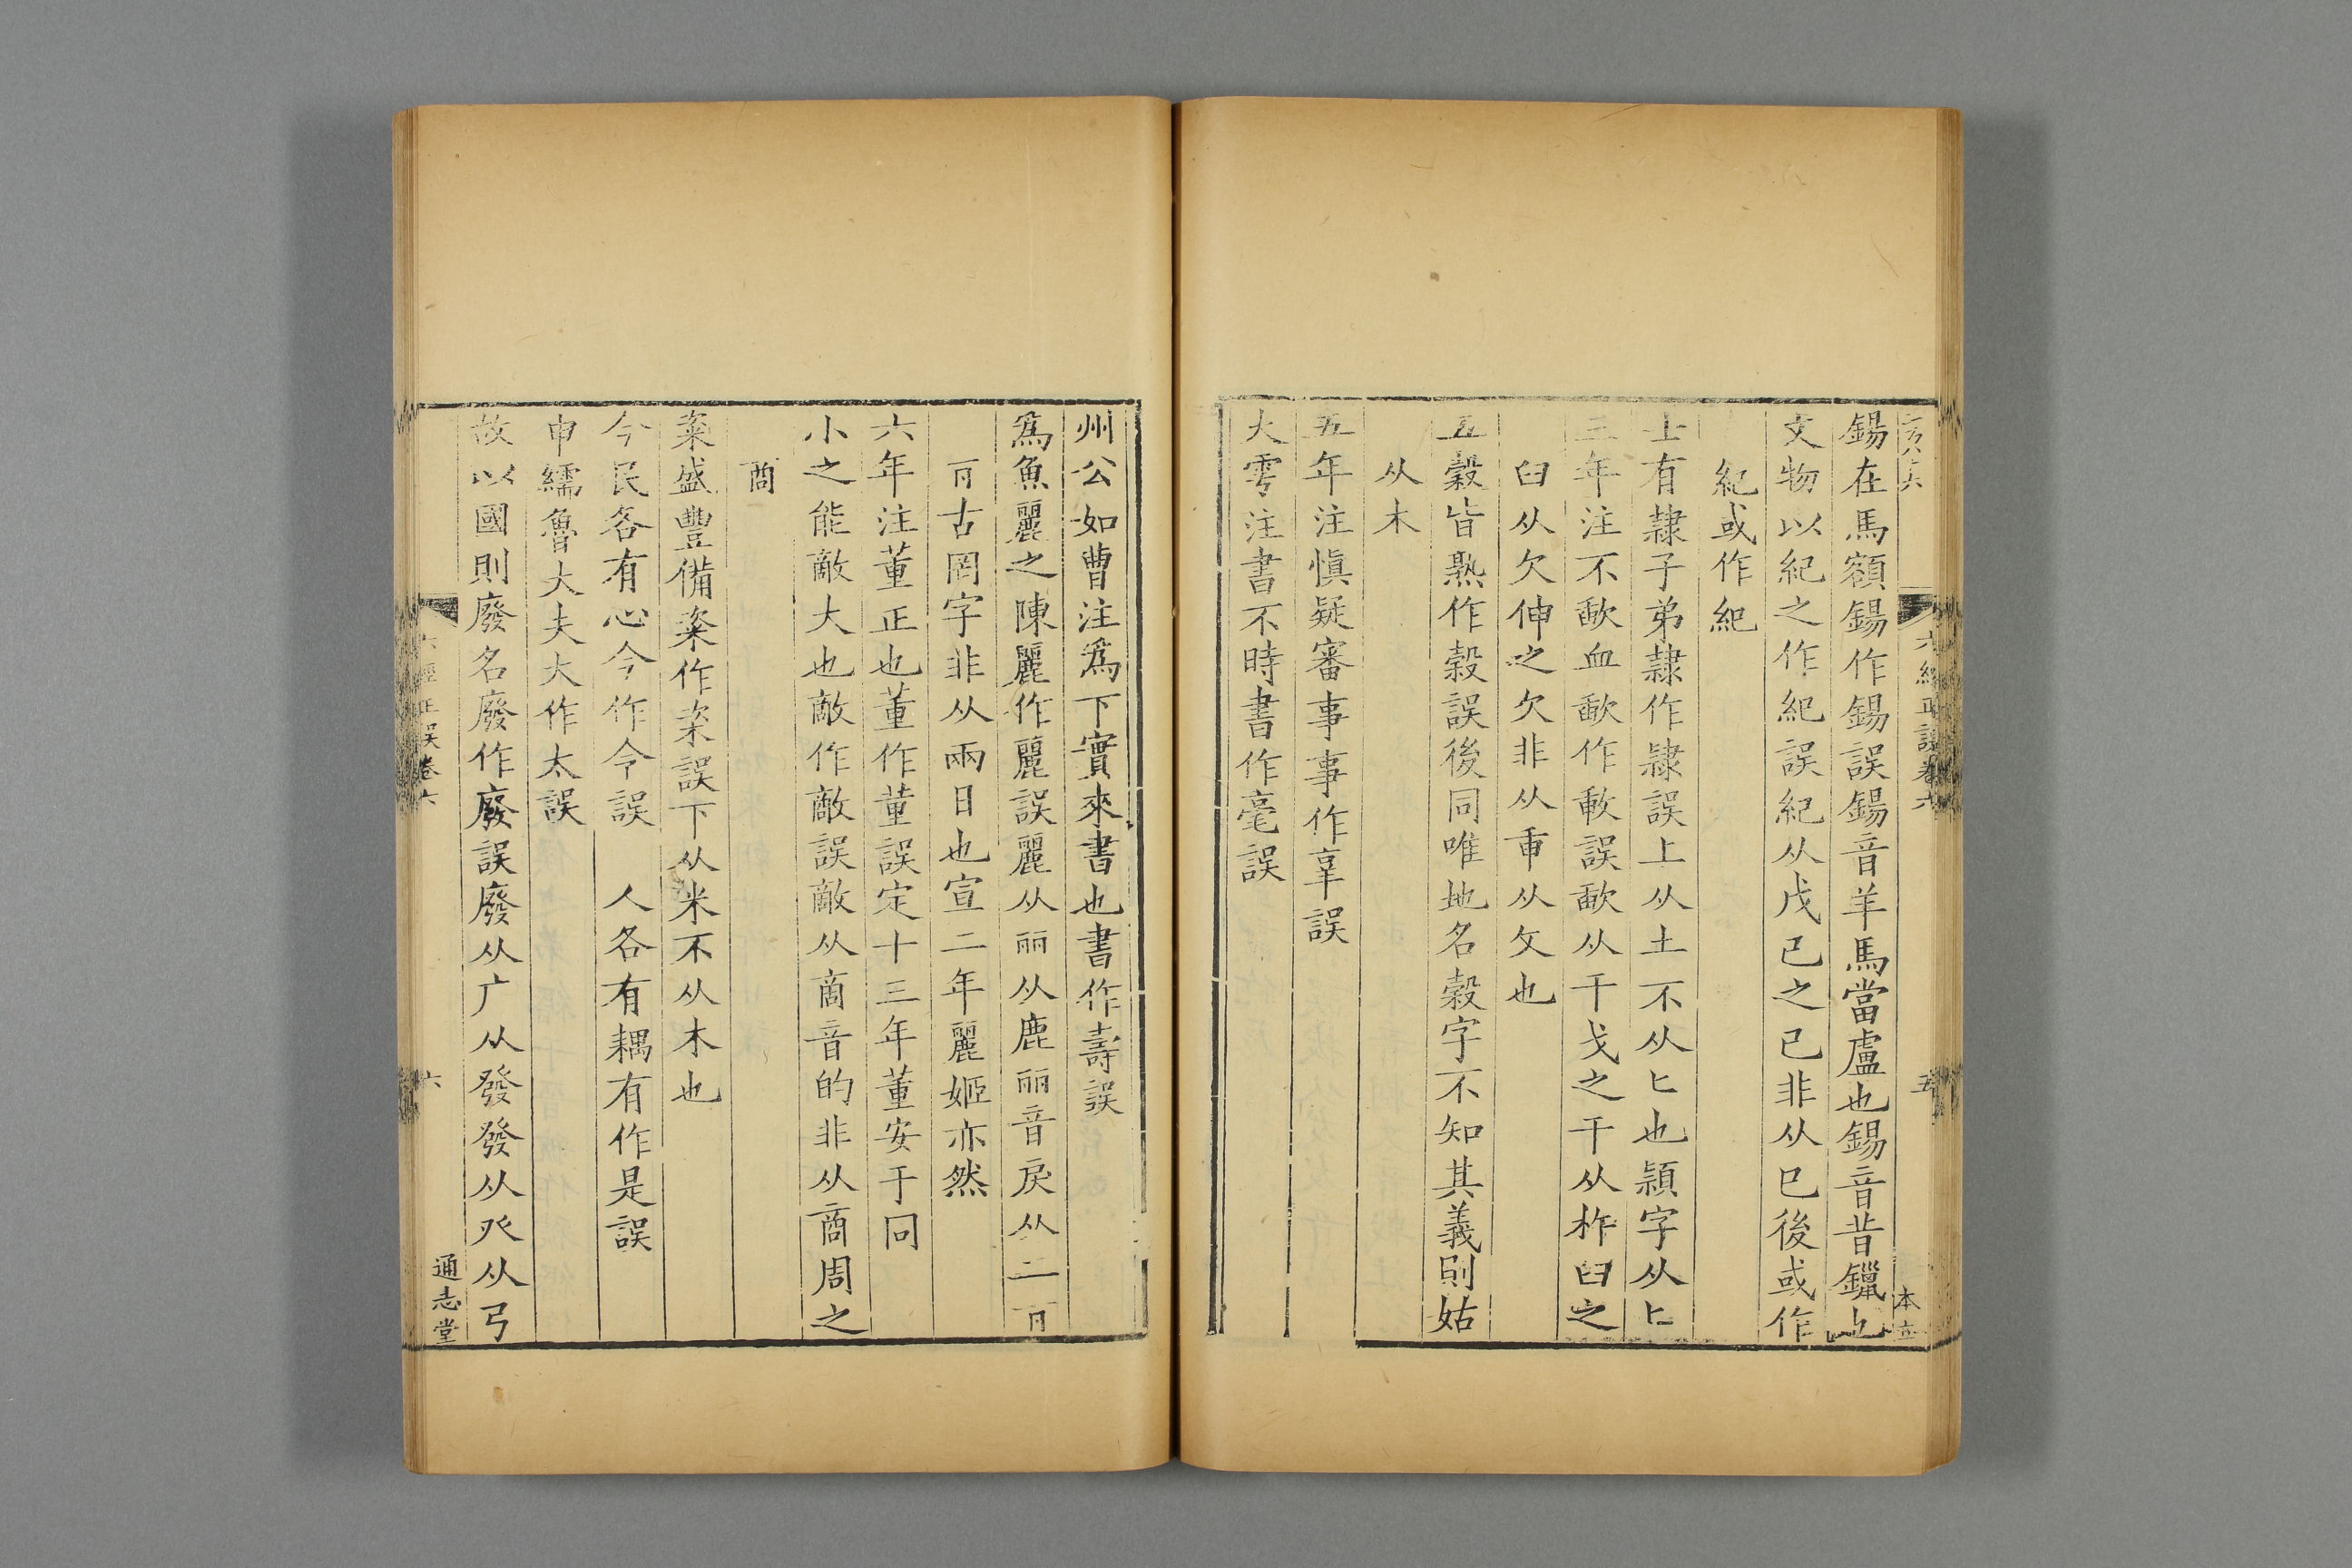 鍚在馬額鍚作錫誤鍚音羊馬當盧也錫音昔鑞也
文物以紀之作紀誤紀从戊己之己非从巳後或作
紀或作紀
士有隷子弟隷作隸誤上从土不从匕也潁字从匕
三年注不歃血歃作㰱誤歃从干戈之干从杵臼之
臼从欠伸之欠非从重从攵也
五穀皆熟作榖誤後同唯地名榖字不知其義則姑
从木
五年注慎疑審事事作辜誤
大雩注書不時書作毫誤
六經正誤卷六
五
本立
州公如曹注爲下實來書也書作壽誤
爲魚麗之陳麗作麗誤麗从丽从鹿丽音戾从二𠕀
𠕀古罔字非从兩日也宣二年麗姬亦然
六年注董正也董作董誤定十三年董安于同
小之能敵大也敵作敵誤敵从啇音的非从商周之
商
粢盛豐備粢作粢誤下从米不从木也
今民各有心今作令誤　人各有耦有作是誤
申繻魯大夫大作太誤
故以國則廢名廢作廢誤廢从广从發發从癶从弓
六經正誤卷六
六
通志堂